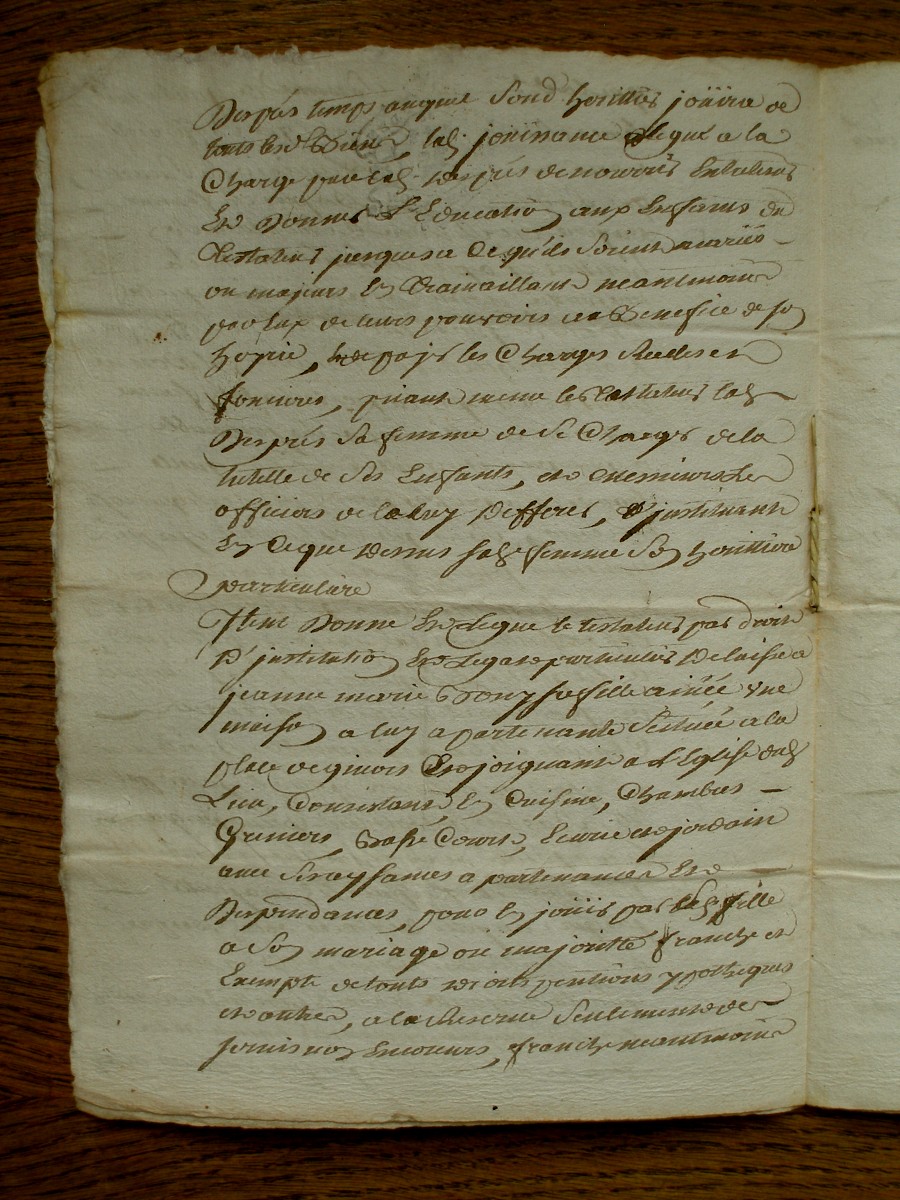 Desprès temps auquel Sond. heritier joüira de
touts lesd. Biens, lad. joüissance legué a la
Charge par lad. Desprès de nourrir Entretenir
Et Donner L'Education aux Enfants du
Testateur jusques a Ce qu'ils Soient mariés
ou majeurs En travaillant neantmoins
par Eux de leurs pouvoirs au Benefice de son
hoirie, de payer les Charges réelles et
foncieres, priant meme led. testateur lad.
Desprès Sa femme de Se Charger de la
tutelle de Ses Enfants, et
officiers de la luy Defferer, L'instituant
En Ce que Dessus Sad. femme Son heritiere
particuliere
Item Donne Et legue le testateur par droit
D'institution Et legat particulier Delaisse a
jeanne marie Bony sa fille ainée une
maison a luy apartenante Scituée a la
place de givors Et joignant a L'Eglise dud.
Lieu, Consistant En Cuisine, Chambres
Greniers, Basse Cour, Ecurie et jardin
avec Ses aysances apartenances Et
Dependances, pour En joüir par lad. fille
a Son mariage ou majorité franche et
Exempte de touts droits pentions ypotheques
et autres, a la Reserve Seulement de
fournis En Cours, franche neantmoins